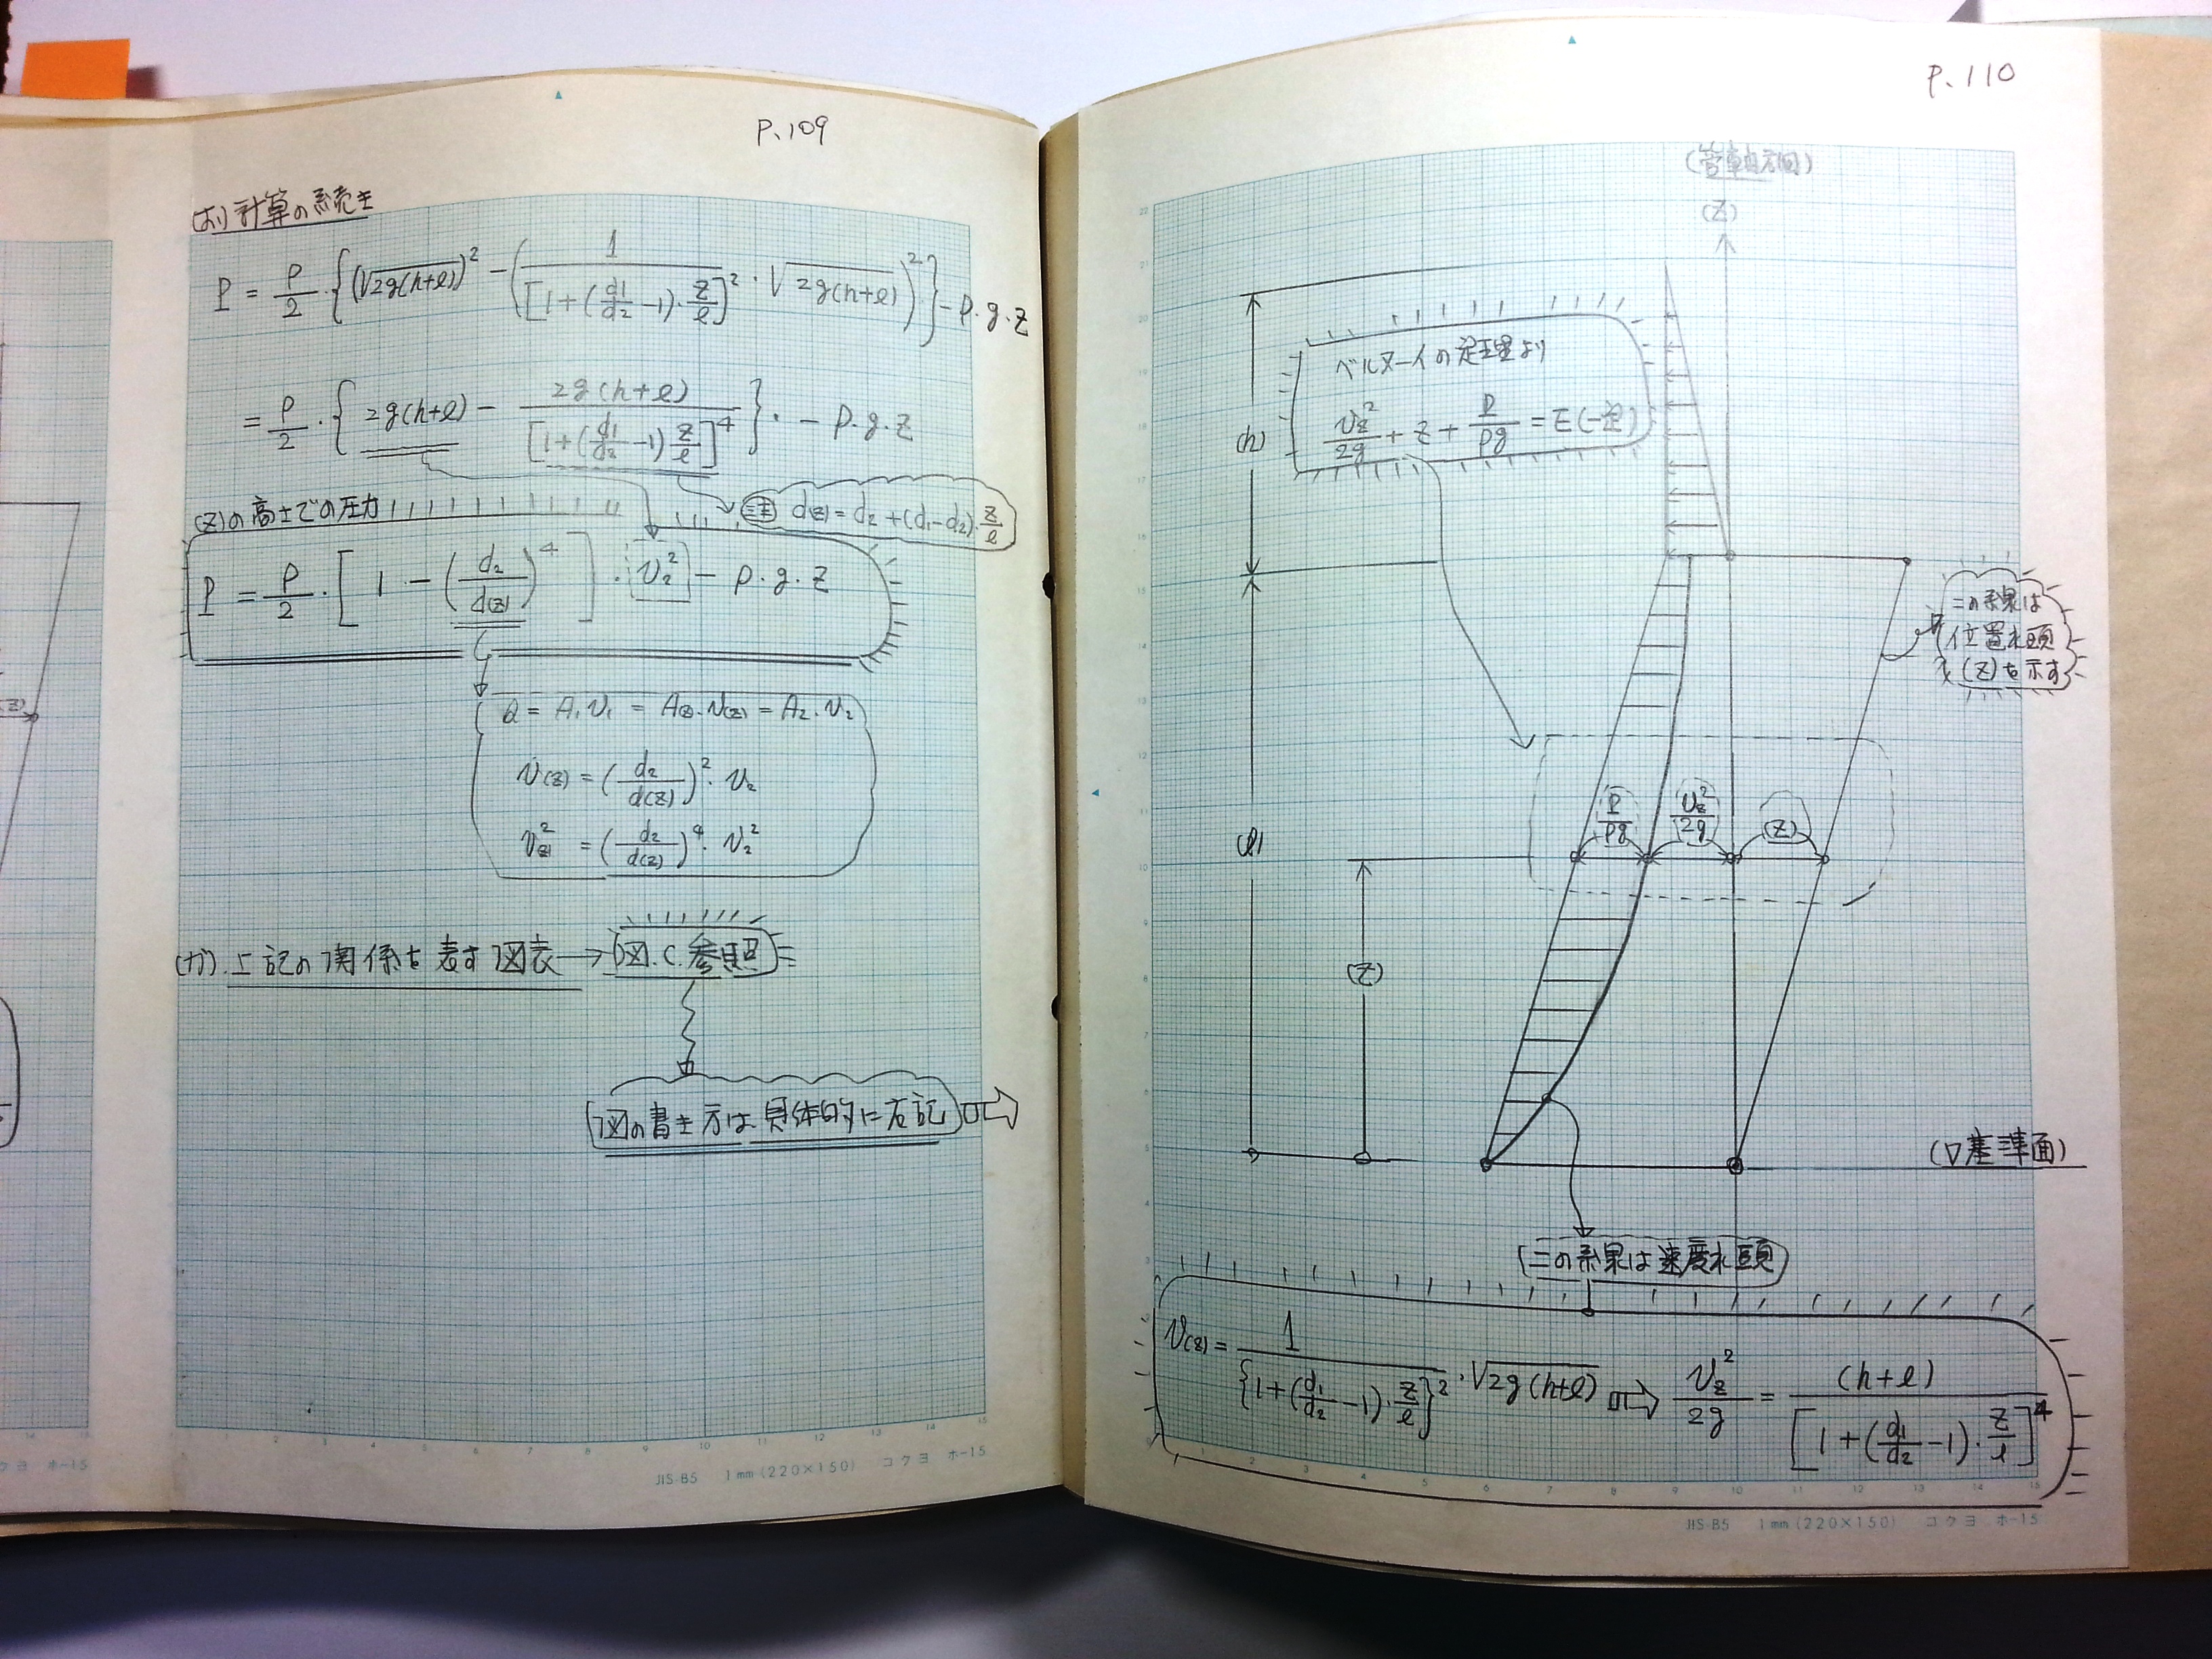 P.109
(お) 計算の続き
P = ρ/2 · { (√2g(h+ℓ))² − ( 1 / [1+(d₁/d₂ −1)·z/ℓ]² · √2g(h+ℓ) )² } − ρ·g·z
= ρ/2 · { 2g(h+ℓ) − 2g(h+ℓ) / [1+(d₁/d₂ −1) z/ℓ]⁴ } · − ρ·g·z
(z)の高さでの圧力
注 d(z) = d₂ + (d₁−d₂)·z/ℓ
P = ρ/2 · [ 1 − (d₂/d(z))⁴ ] · v₂² − ρ·g·z
Q = A₁v₁ = A(z)·v(z) = A₂·v₂
v(z) = (d₂/d(z))²· v₂
v(z)² = (d₂/d(z))⁴· v₂²
(か).上記の関係を表す図表→図.C.参照
図の書き方は具体的に右記⇨
JIS-B5 1mm(220×150) コクヨ ホ-15
P.110
(管軸方向)
(Z)
ベルヌーイの定理より
v_z²/2g + z + P/ρg = E(一定)
(h)
この線は
位置水頭
(Z)を示す
P/ρg
v_z²/2g
(Z)
(ℓ)
(Z)
(▽基準面)
この線は速度水頭
v(z) = 1 / {1+(d₁/d₂ −1)·z/ℓ}² · √2g(h+ℓ) ⇨ v_z²/2g = (h+ℓ) / [1+(d₁/d₂ −1)·z/ℓ]⁴
JIS-B5 1mm(220×150) コクヨ ホ-15